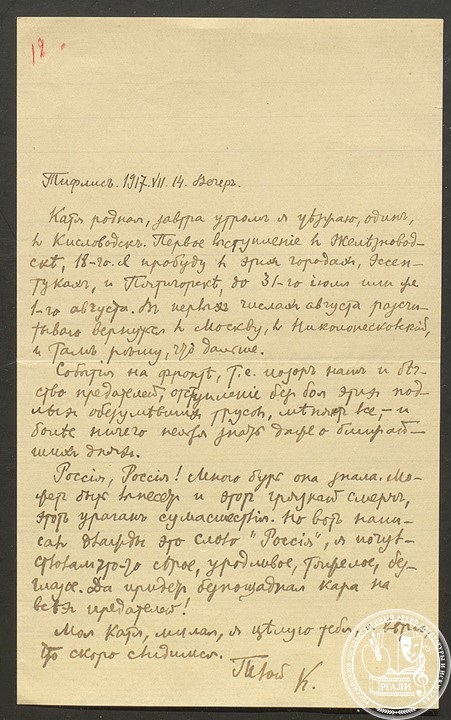 12.
Тифлисъ. 1917. VII. 14. Вечеръ.
Катя родная, завтра утромъ я уѣзжаю, одинъ,
въ Кисловодскъ. Первое выступленіе въ Желѣзновод-
скѣ, 18-го. Я пробуду въ этихъ городахъ, Ессен-
тукахъ, и Пятигорскѣ, до 31-го іюля или же
1-го августа. Въ первыхъ числахъ августа разсчи-
тываю вернуться въ Москву, въ Николопесковскій,
и тамъ рѣшу, что дальше.
Событія на фронтѣ, т.е. позоръ нашъ и бѣг-
ство предателей, отступленіе безъ боя этихъ под-
лыхъ обезумѣвшихъ трусовъ, мѣняютъ все, – и
болѣе ничего нельзя знать даже о ближай-
шихъ дняхъ.
Россія, Россія! Много бурь она знала. Мо-
жетъ быть вынесетъ и этотъ грязный смерчъ,
этотъ ураганъ сумасшествія. Но вотъ напи-
савъ дважды это слово "Россія", я почув-
ствовалъ что-то сѣрое, уродливое, тяжелое, без-
глазое. Да придетъ безпощадная кара на
всѣхъ предателей!
Моя Катя, милая, я цѣлую тебя, и вѣрю
что скоро свидимся.
Твой К.
РГАЛИ